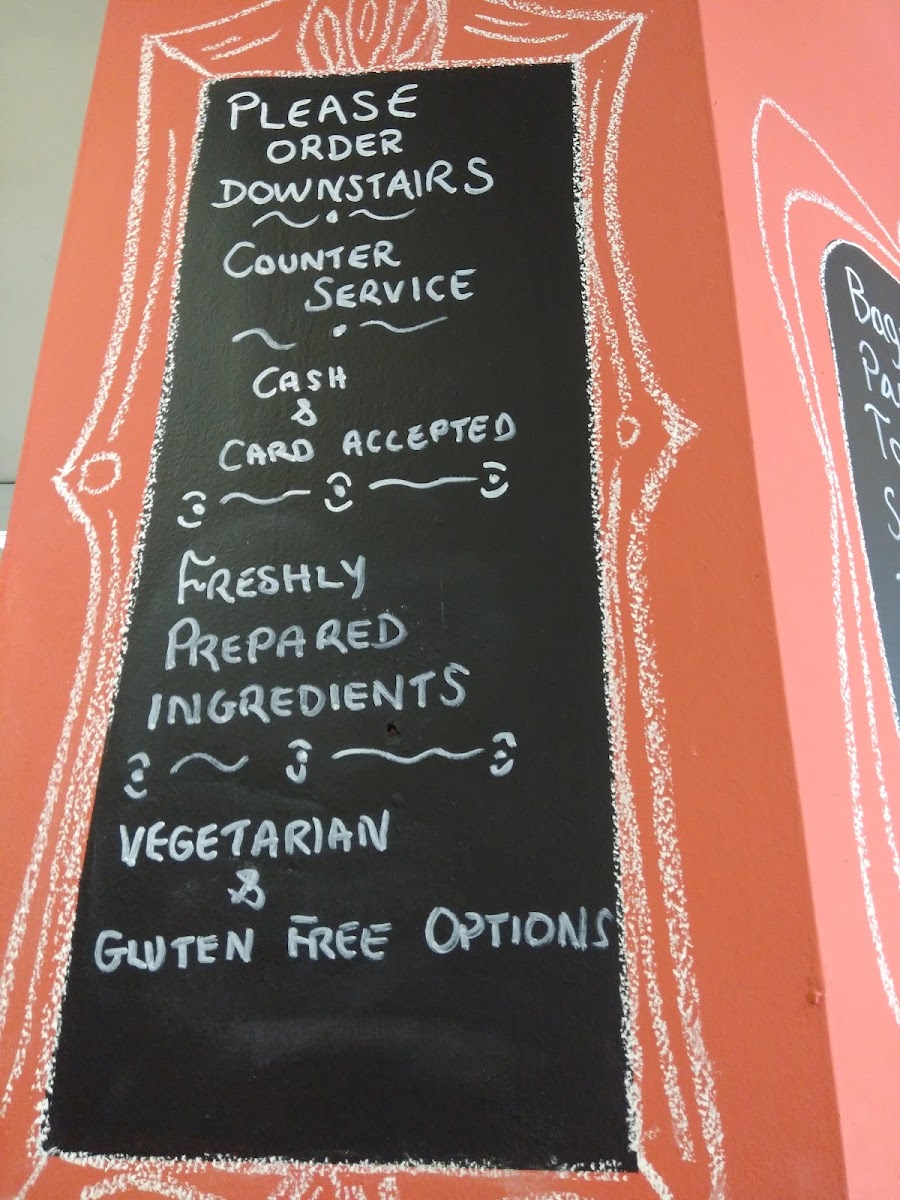 PLEASE
ORDER
DOWNSTAIRS
COUNTER
SERVICE
CASH
&
CARD ACCEPTED
FRESHLY
PREPARED
INGREDIENTS
VEGETARIAN
&
GLUTEN FREE OPTIONS